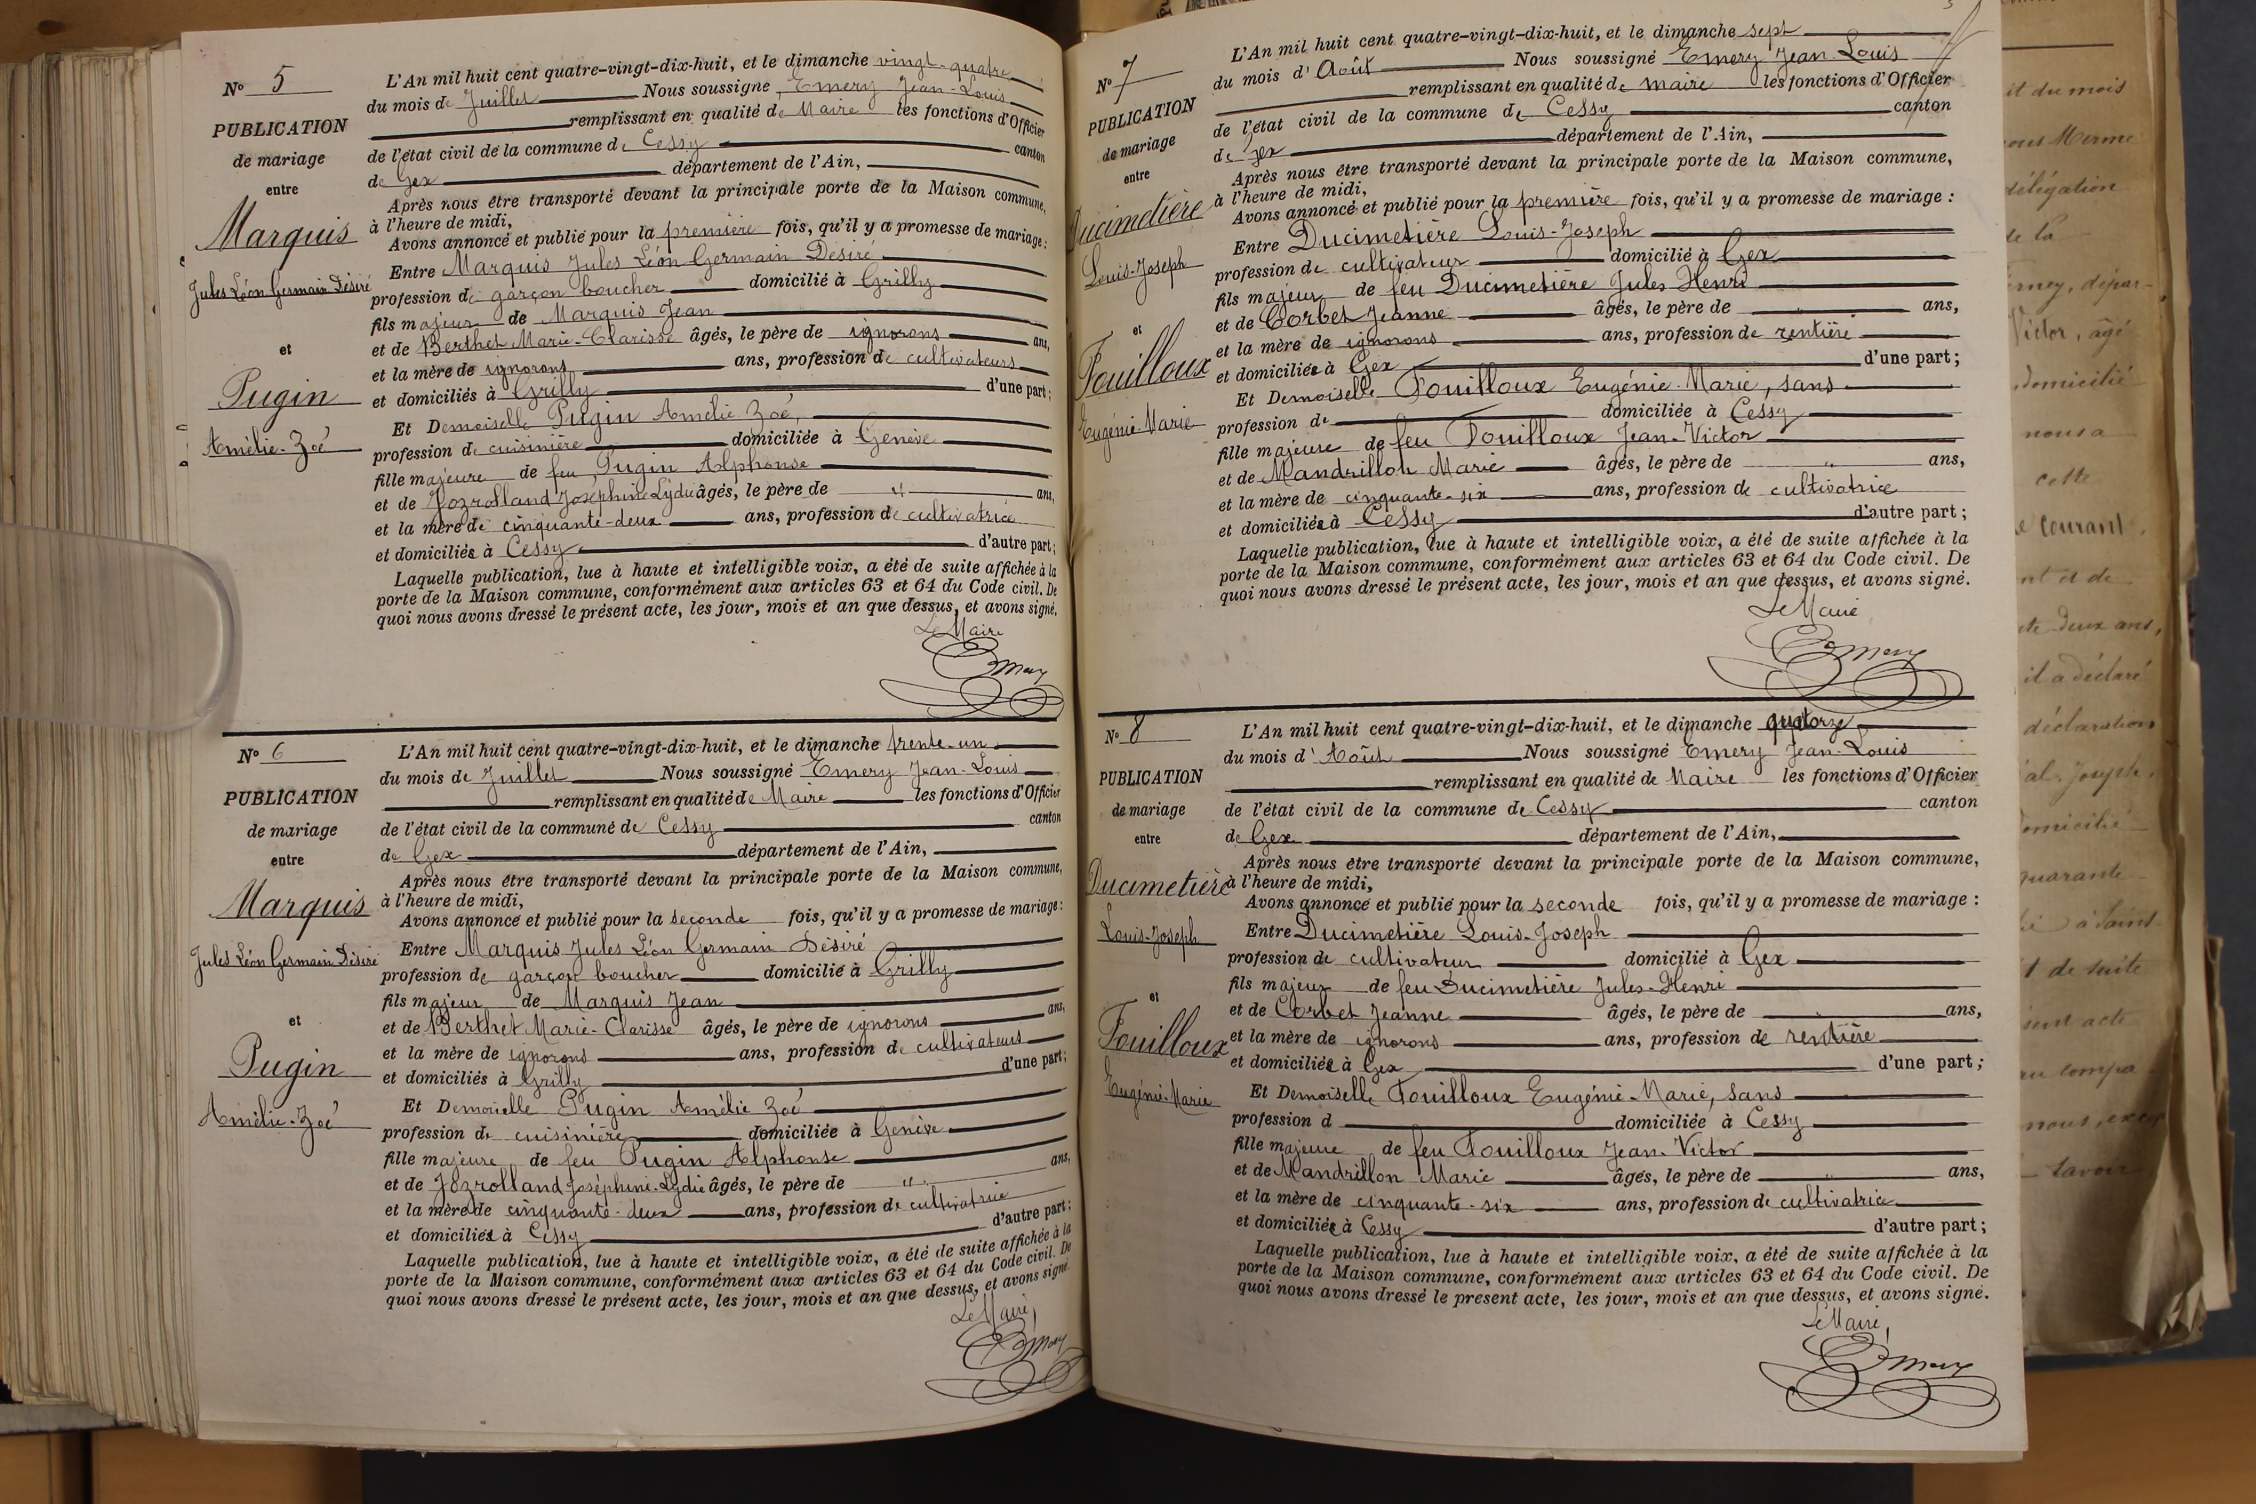 N° 5
PUBLICATION
de mariage
entre
Marquis
Jules Léon Germain Désiré
et
Pugin
Amélie-Zoé
L'An mil huit cent quatre-vingt-dix-huit, et le dimanche vingt-quatre
du mois de Juillet Nous soussigné Emery Jean-Louis
remplissant en qualité de Maire les fonctions d'Officier
de l'état civil de la commune de Cessy canton
de Gex département de l'Ain,
Après nous être transporté devant la principale porte de la Maison commune,
à l'heure de midi,
Avons annoncé et publié pour la première fois, qu'il y a promesse de mariage :
Entre Marquis Jules Léon Germain Désiré
profession de garçon boucher domicilié à Grilly
fils majeur de Marquis Jean
et de Berthet Marie-Clarisse âgés, le père de ignorons ans,
et la mère de ignorons ans, profession de cultivateurs
et domiciliés à Grilly d'une part ;
Et Demoiselle Pugin Amélie Zoé,
profession de cuisinière domiciliée à Genève
fille majeure de feu Pugin Alphonse
et de Jozrolland Joséphine Lydie âgés, le père de " ans,
et la mère de cinquante-deux ans, profession de cultivatrice
et domiciliée à Cessy d'autre part ;
Laquelle publication, lue à haute et intelligible voix, a été de suite affichée à la
porte de la Maison commune, conformément aux articles 63 et 64 du Code civil. De
quoi nous avons dressé le présent acte, les jour, mois et an que dessus, et avons signé.
Le Maire
Emery
N° 6
PUBLICATION
de mariage
entre
Marquis
Jules Léon Germain Désiré
et
Pugin
Amélie-Zoé
L'An mil huit cent quatre-vingt-dix-huit, et le dimanche trente-un
du mois de Juillet Nous soussigné Emery Jean-Louis
remplissant en qualité de Maire les fonctions d'Officier
de l'état civil de la commune de Cessy canton
de Gex département de l'Ain,
Après nous être transporté devant la principale porte de la Maison commune,
à l'heure de midi,
Avons annoncé et publié pour la seconde fois, qu'il y a promesse de mariage :
Entre Marquis Jules Léon Germain Désiré
profession de garçon boucher domicilié à Grilly
fils majeur de Marquis Jean
et de Berthet Marie-Clarisse âgés, le père de ignorons ans,
et la mère de ignorons ans, profession de cultivateurs
et domiciliés à Grilly d'une part ;
Et Demoiselle Pugin Amélie Zoé
profession de cuisinière domiciliée à Genève
fille majeure de feu Pugin Alphonse
et de Jozrolland Joséphine-Lydie âgés, le père de " ans,
et la mère de cinquante-deux ans, profession de cultivatrice
et domiciliée à Cessy d'autre part ;
Laquelle publication, lue à haute et intelligible voix, a été de suite affichée à la
porte de la Maison commune, conformément aux articles 63 et 64 du Code civil. De
quoi nous avons dressé le présent acte, les jour, mois et an que dessus, et avons signé.
Le Maire,
Emery
N° 7
PUBLICATION
de mariage
entre
Ducimetière
Louis-Joseph
et
Fouilloux
Eugénie-Marie
L'An mil huit cent quatre-vingt-dix-huit, et le dimanche sept
du mois d'Août Nous soussigné Emery Jean-Louis
remplissant en qualité de maire les fonctions d'Officier
de l'état civil de la commune de Cessy canton
de Gex département de l'Ain,
Après nous être transporté devant la principale porte de la Maison commune,
à l'heure de midi,
Avons annoncé et publié pour la première fois, qu'il y a promesse de mariage :
Entre Ducimetière Louis-Joseph
profession de cultivateur domicilié à Gex
fils majeur de feu Ducimetière Jules Henri
et de Corbet Jeanne âgés, le père de " ans,
et la mère de ignorons ans, profession de rentière
et domiciliée à Gex d'une part ;
Et Demoiselle Fouilloux Eugénie-Marie, sans
profession de domiciliée à Cessy
fille majeure de feu Fouilloux Jean-Victor
et de Mandrillon Marie âgés, le père de " ans,
et la mère de cinquante-six ans, profession de cultivatrice
et domiciliée à Cessy d'autre part ;
Laquelle publication, lue à haute et intelligible voix, a été de suite affichée à la
porte de la Maison commune, conformément aux articles 63 et 64 du Code civil. De
quoi nous avons dressé le présent acte, les jour, mois et an que dessus, et avons signé.
Le Maire
Emery
N° 8
PUBLICATION
de mariage
entre
Ducimetière
Louis-Joseph
et
Fouilloux
Eugénie-Marie
L'An mil huit cent quatre-vingt-dix-huit, et le dimanche quatorze
du mois d'Août Nous soussigné Emery Jean-Louis
remplissant en qualité de Maire les fonctions d'Officier
de l'état civil de la commune de Cessy canton
de Gex département de l'Ain,
Après nous être transporté devant la principale porte de la Maison commune,
à l'heure de midi,
Avons annoncé et publié pour la seconde fois, qu'il y a promesse de mariage :
Entre Ducimetière Louis-Joseph
profession de cultivateur domicilié à Gex
fils majeur de feu Ducimetière Jules-Henri
et de Corbet Jeanne âgés, le père de ans,
et la mère de ignorons ans, profession de rentière
et domiciliée à Gex d'une part ;
Et Demoiselle Fouilloux Eugénie-Marie, sans
profession d domiciliée à Cessy
fille majeure de feu Fouilloux Jean-Victor
et de Mandrillon Marie âgés, le père de " ans,
et la mère de cinquante-six ans, profession de cultivatrice
et domiciliée à Cessy d'autre part ;
Laquelle publication, lue à haute et intelligible voix, a été de suite affichée à la
porte de la Maison commune, conformément aux articles 63 et 64 du Code civil. De
quoi nous avons dressé le présent acte, les jour, mois et an que dessus, et avons signé.
Le Maire,
Emery
it du mois
délégation
de la
Victor, âgé
domicilié
nous a
cette
courant.
nt et de
deux ans,
il a déclaré
déclaration
Joseph,
domicilié
quarante
à Saint
de suite
acte
nous,
savoir